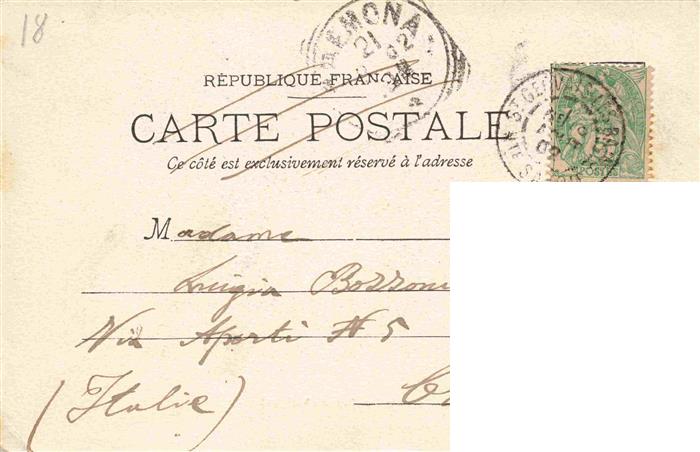 18
CREMONA
RÉPUBLIQUE FRANÇAISE
CARTE POSTALE
Ce côté est exclusivement réservé à l'adresse
POSTES
Madame
Luigia Bozzoni
Via Aporti N 5
(Italie)